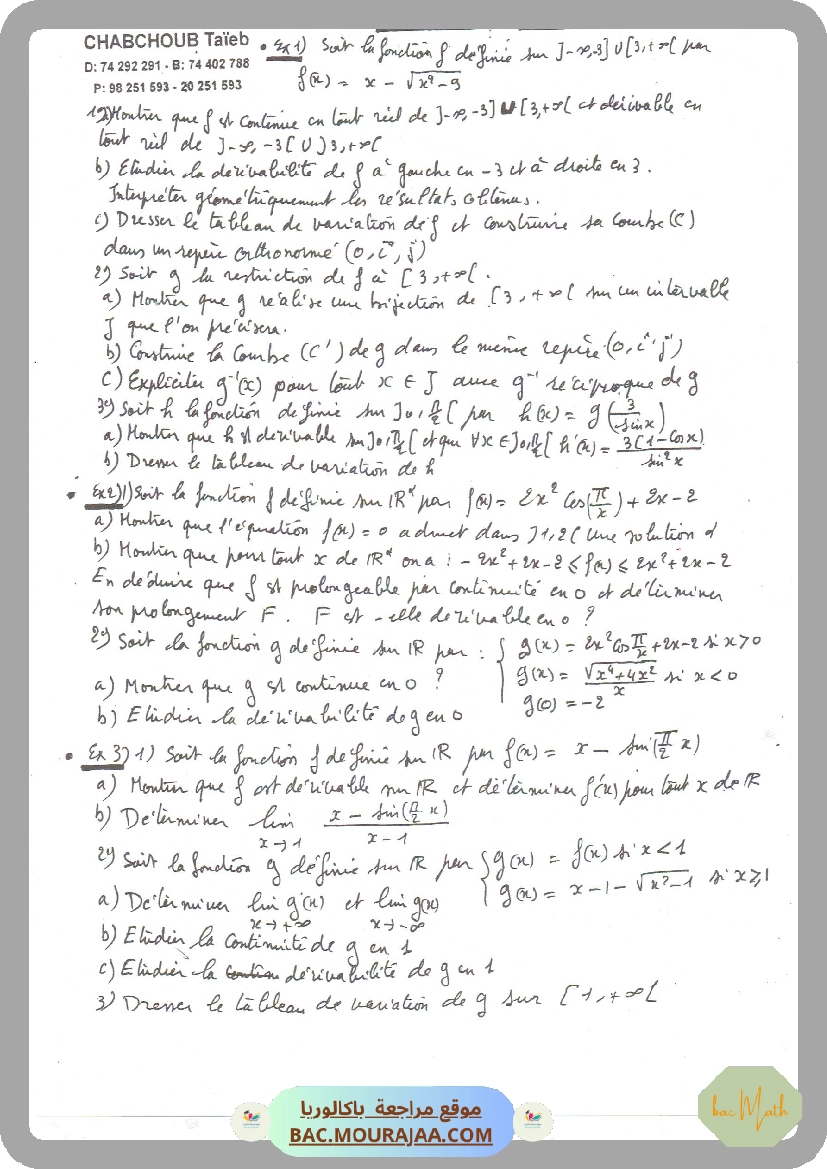 CHABCHOUB Taïeb
D: 74 292 291 - B: 74 402 788
P: 98 251 593 - 20 251 593
• Ex 1) Soit la fonction f définie sur ]-∞,-3] ∪ [3,+∞[ par
f(x) = x - √(x²-9)
1°) a) Montrer que f est continue en tout réel de ]-∞,-3] ∪ [3,+∞[ et dérivable en
tout réel de ]-∞,-3[ ∪ ]3,+∞[
b) Etudier la dérivabilité de f à gauche en -3 et à droite en 3.
Interpréter géométriquement les résultats obtenus.
c) Dresser le tableau de variation de f et construire sa courbe (C)
dans un repère orthonormé (O, i, j)
2°) Soit g la restriction de f à [3,+∞[.
a) Montrer que g réalise une bijection de [3,+∞[ sur un intervalle
J que l'on précisera.
b) Construire la courbe (C') de g dans le même repère (O, i, j)
c) Expliciter g⁻¹(x) pour tout x ∈ J avec g⁻¹ réciproque de g
3°) Soit h la fonction définie sur ]0, π/2[ par h(x) = g(3/sinx)
a) Montrer que h est dérivable sur ]0, π/2[ et que ∀x ∈ ]0, π/2[ h'(x) = 3(1-cosx)/sin²x
b) Dresser le tableau de variation de h
• Ex 2) 1) Soit la fonction f définie sur IR* par f(x) = 2x² cos(π/x) + 2x - 2
a) Montrer que l'équation f(x) = 0 admet dans ]1,2[ une solution α
b) Montrer que pour tout x de IR* on a : -2x²+2x-2 ≤ f(x) ≤ 2x²+2x-2
En déduire que f est prolongeable par continuité en 0 et déterminer
son prolongement F. F est-elle dérivable en 0 ?
2°) Soit la fonction g définie sur IR par : { g(x) = 2x² cos π/x + 2x-2 si x>0
g(x) = √(x⁴+4x²)/x si x<0
g(0) = -2
a) Montrer que g est continue en 0 ?
b) Etudier la dérivabilité de g en 0
• Ex 3) 1) Soit la fonction f définie sur IR par f(x) = x - sin(π/2 x)
a) Montrer que f est dérivable sur IR et déterminer f'(x) pour tout x de IR
b) Déterminer lim x→1 (x - sin(π/2 x))/(x-1)
2°) Soit la fonction g définie sur IR par { g(x) = f(x) si x<1
g(x) = x-1-√(x²-1) si x≥1
a) Déterminer lim g(x) x→+∞ et lim g(x) x→-∞
b) Etudier la continuité de g en 1
c) Etudier la dérivabilité de g en 1
3) Dresser le tableau de variation de g sur [1,+∞[
موقع مراجعة باكالوريا
BAC.MOURAJAA.COM
bac Math